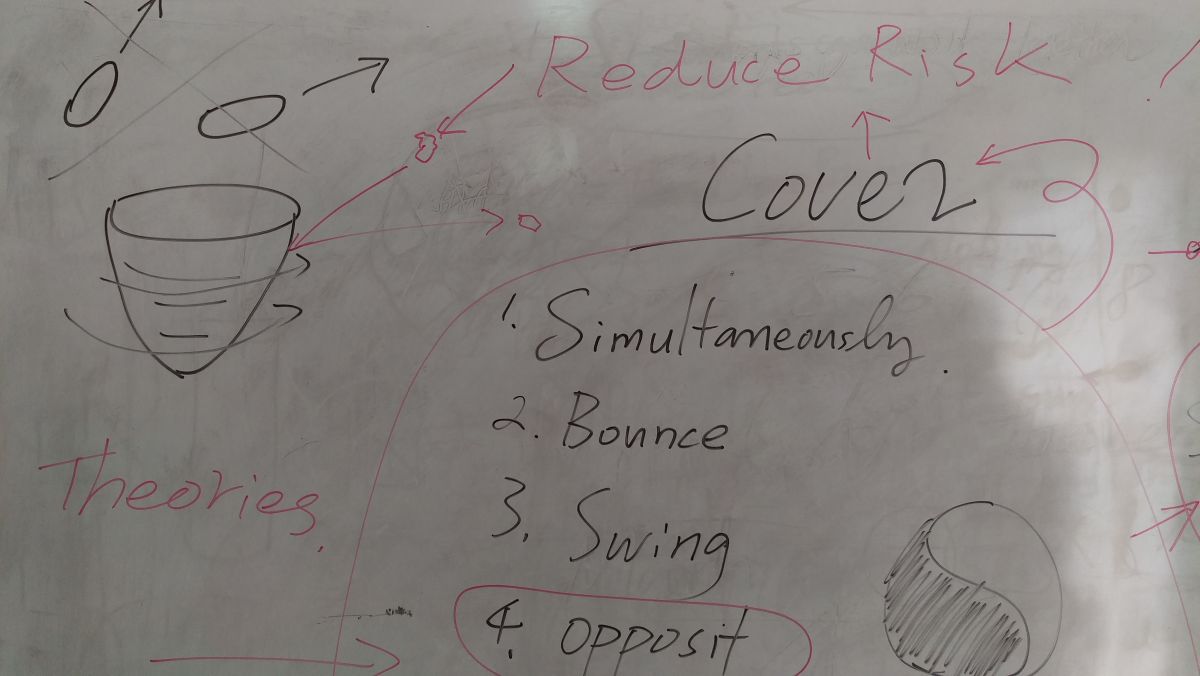 Reduce Risk
Cover
1. Simultaneously.
2. Bounce
3. Swing
Theories.
4. opposit